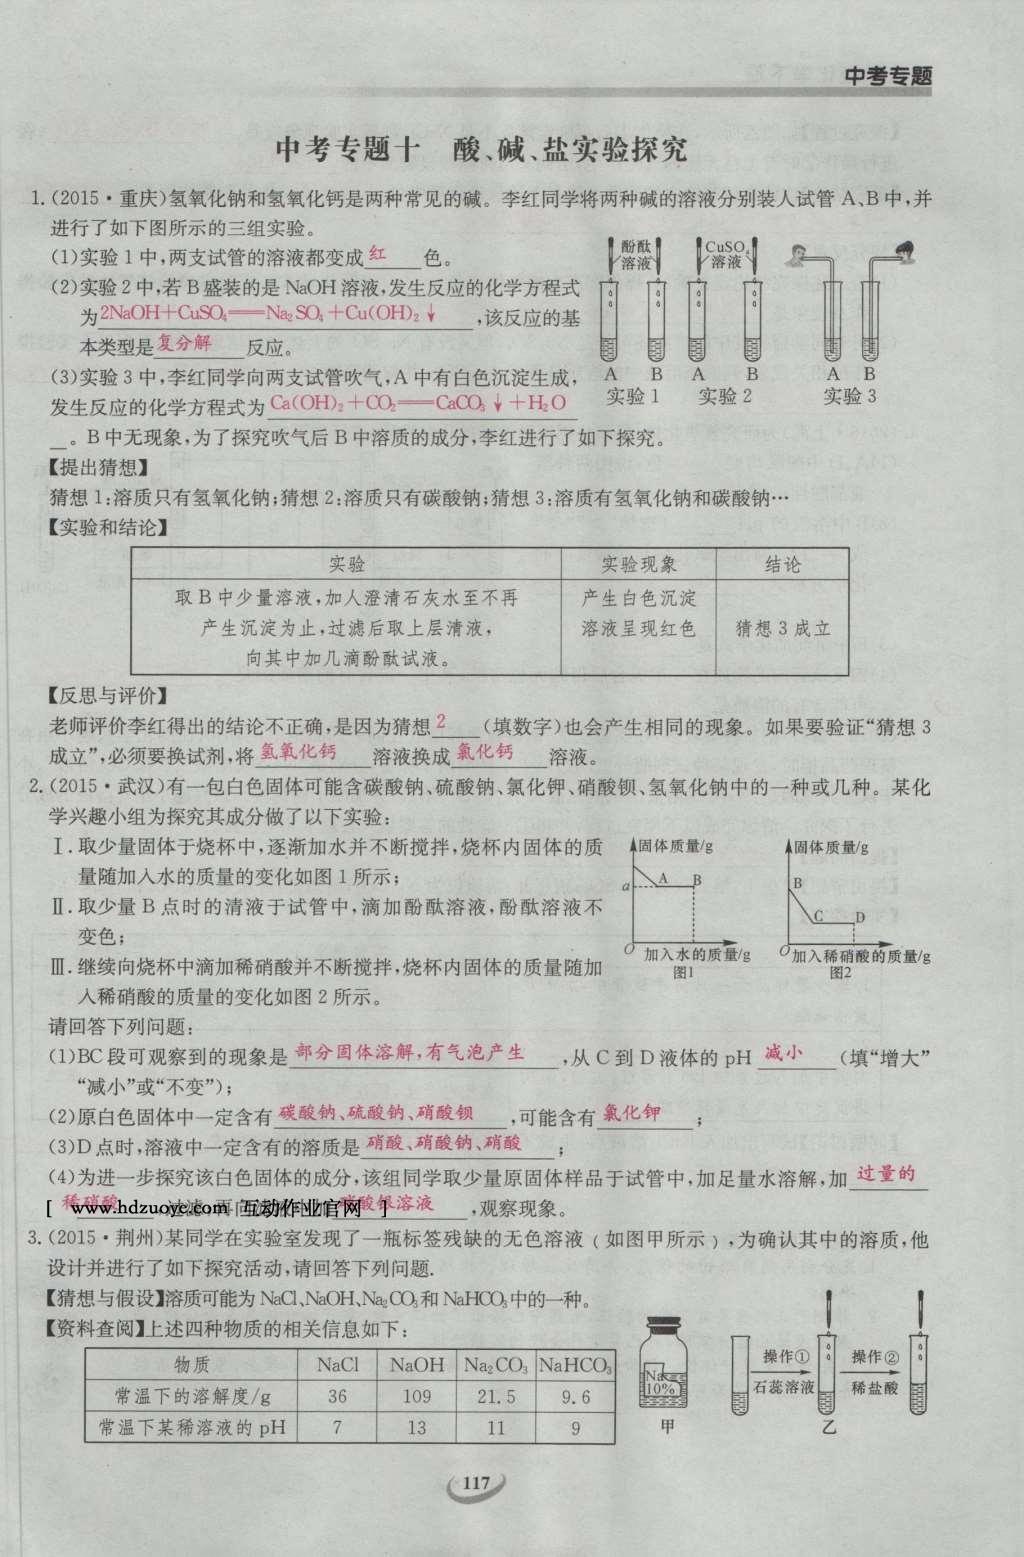 中考专题
中考专题十 酸、碱、盐实验探究
1.(2015·重庆)氢氧化钠和氢氧化钙是两种常见的碱。李红同学将两种碱的溶液分别装人试管A、B中,并
进行了如下图所示的三组实验。
(1)实验1中,两支试管的溶液都变成红色。
(2)实验2中,若B盛装的是NaOH溶液,发生反应的化学方程式
为2NaOH+CuSO₄══Na₂SO₄+Cu(OH)₂↓,该反应的基
本类型是复分解反应。
(3)实验3中,李红同学向两支试管吹气,A中有白色沉淀生成,
发生反应的化学方程式为Ca(OH)₂+CO₂══CaCO₃↓+H₂O
。B中无现象,为了探究吹气后B中溶质的成分,李红进行了如下探究。
酚酞溶液
CuSO₄溶液
A B A B A B
实验1 实验2 实验3
【提出猜想】
猜想1:溶质只有氢氧化钠;猜想2:溶质只有碳酸钠;猜想3:溶质有氢氧化钠和碳酸钠…
【实验和结论】
实验 实验现象 结论
取B中少量溶液,加人澄清石灰水至不再 产生白色沉淀
产生沉淀为止,过滤后取上层清液, 溶液呈现红色 猜想3成立
向其中加几滴酚酞试液。
【反思与评价】
老师评价李红得出的结论不正确,是因为猜想2(填数字)也会产生相同的现象。如果要验证“猜想3
成立”,必须要换试剂,将氢氧化钙溶液换成氯化钙溶液。
2.(2015·武汉)有一包白色固体可能含碳酸钠、硫酸钠、氯化钾、硝酸钡、氢氧化钠中的一种或几种。某化
学兴趣小组为探究其成分做了以下实验:
Ⅰ.取少量固体于烧杯中,逐渐加水并不断搅拌,烧杯内固体的质
量随加入水的质量的变化如图1所示;
Ⅱ.取少量B点时的清液于试管中,滴加酚酞溶液,酚酞溶液不
变色;
Ⅲ.继续向烧杯中滴加稀硝酸并不断搅拌,烧杯内固体的质量随加
入稀硝酸的质量的变化如图2所示。
固体质量/g
a A B
O 加入水的质量/g
图1
固体质量/g
B
C D
O 加入稀硝酸的质量/g
图2
请回答下列问题:
(1)BC段可观察到的现象是部分固体溶解,有气泡产生,从C到D液体的pH减小(填“增大”
“减小”或“不变”);
(2)原白色固体中一定含有碳酸钠、硫酸钠、硝酸钡,可能含有氯化钾;
(3)D点时,溶液中一定含有的溶质是硝酸、硝酸钠、硝酸;
(4)为进一步探究该白色固体的成分,该组同学取少量原固体样品于试管中,加足量水溶解,加过量的
稀硝酸,过滤,再向硝酸银溶液,观察现象。
[ www.hdzuoye.com 互动作业官网 ]
3.(2015·荆州)某同学在实验室发现了一瓶标签残缺的无色溶液(如图甲所示),为确认其中的溶质,他
设计并进行了如下探究活动,请回答下列问题.
【猜想与假设】溶质可能为NaCl、NaOH、Na₂CO₃和NaHCO₃中的一种。
【资料查阅】上述四种物质的相关信息如下:
物质 NaCl NaOH Na₂CO₃ NaHCO₃
常温下的溶解度/g 36 109 21.5 9.6
常温下某稀溶液的pH 7 13 11 9
Na
10%
甲
操作①
石蕊溶液
乙
操作②
稀盐酸
117